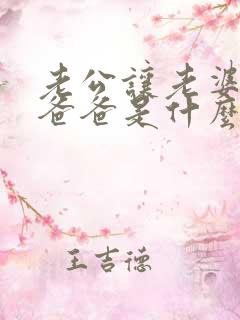 老公讓老婆
爸爸是什麼
王吉德